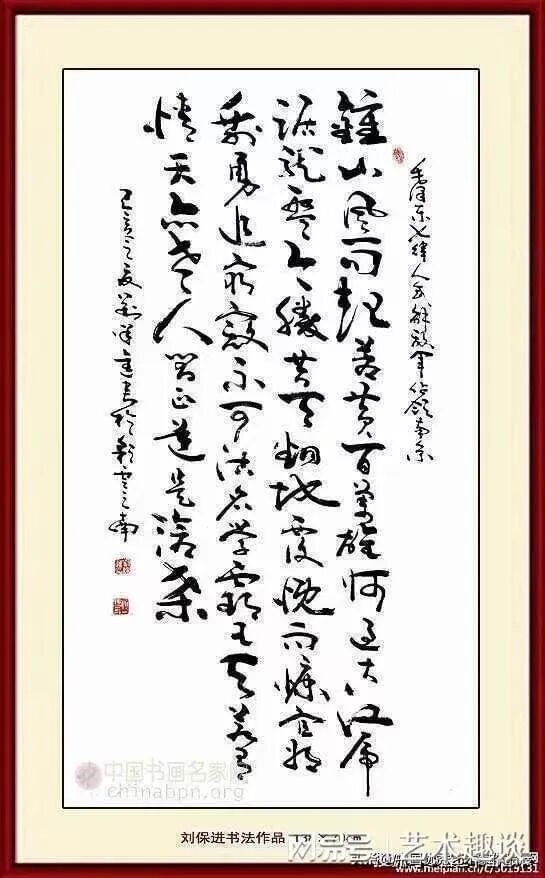 毛泽东七律人民解放军占领南京
鍾山风雨起苍黄百万雄师过大江虎
踞龙盘今胜昔天翻地覆慨而慷宜将
剩勇追穷寇不可沽名学霸王天若有
情天亦老人间正道是沧桑
己亥之夏刘保进书于彩云之南
中国书画名家网
chinabhpn.org
刘保进书法作品
搜狐号@艺术趣谈
www.meipian.cn/c/5019131